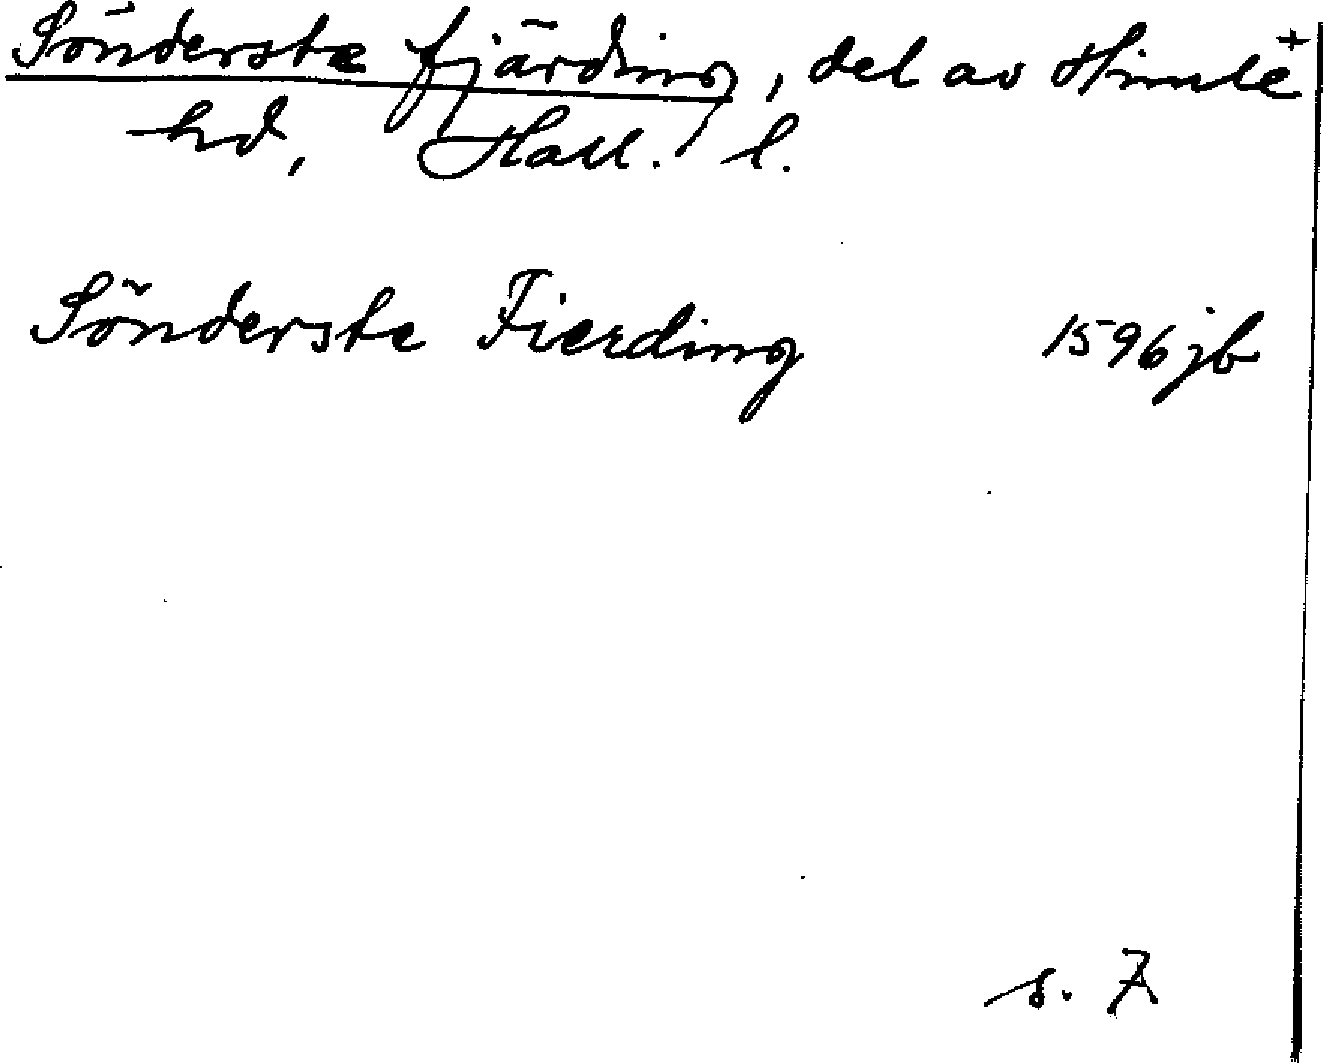 Sönderste fjärding, del av Himle +
hd, Hall. l.
Sönderste Fierding 1596 jb
s. 7